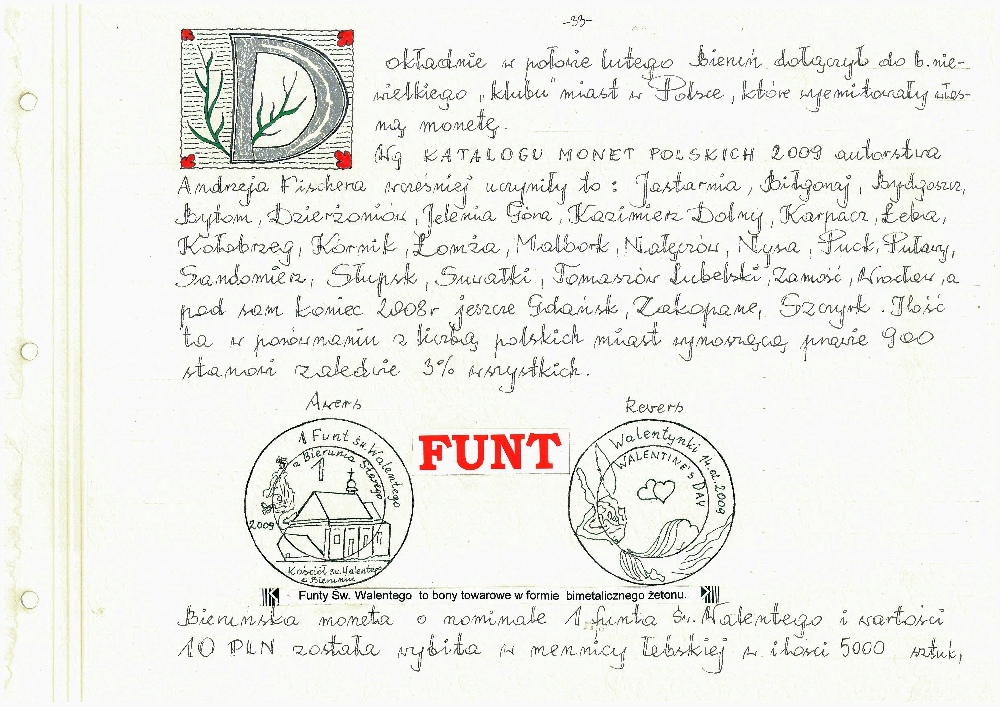 -33-
Dokładnie w połowie lutego Bieruń dołączył do b. nie-
wielkiego „klubu" miast w Polsce, które wyemitowały włas-
ną monetę.
Wg KATALOGU MONET POLSKICH 2009 autorstwa
Andrzeja Fischera wcześniej uczyniły to: Jastarnia, Biłgoraj, Bydgoszcz,
Bytom, Dzierżoniów, Jelenia Góra, Kazimierz Dolny, Karpacz, Łeba,
Kołobrzeg, Kórnik, Łomża, Malbork, Nałęczów, Nysa, Puck, Puławy,
Sandomierz, Słupsk, Suwałki, Tomaszów Lubelski, Zamość, Wrocław, a
pod sam koniec 2008r jeszcze Gdańsk, Zakopane, Szczyrk. Ilość
ta w porównaniu z liczbą polskich miast wynoszącą prawie 900
stanowi zaledwie 3% wszystkich.
Awers
Rewers
1 Funt św. Walentego
z Bierunia Starego
1
2009
Kościół św. Walentego
w Bieruniu
FUNT
Walentynki 14.02.2009
WALENTINE'S DAY
Funty Św. Walentego to bony towarowe w formie bimetalicznego żetonu.
Bieruńska moneta o nominale 1 funta Św. Walentego i wartości
10 PLN została wybita w mennicy Łebskiej w ilości 5000 sztuk,